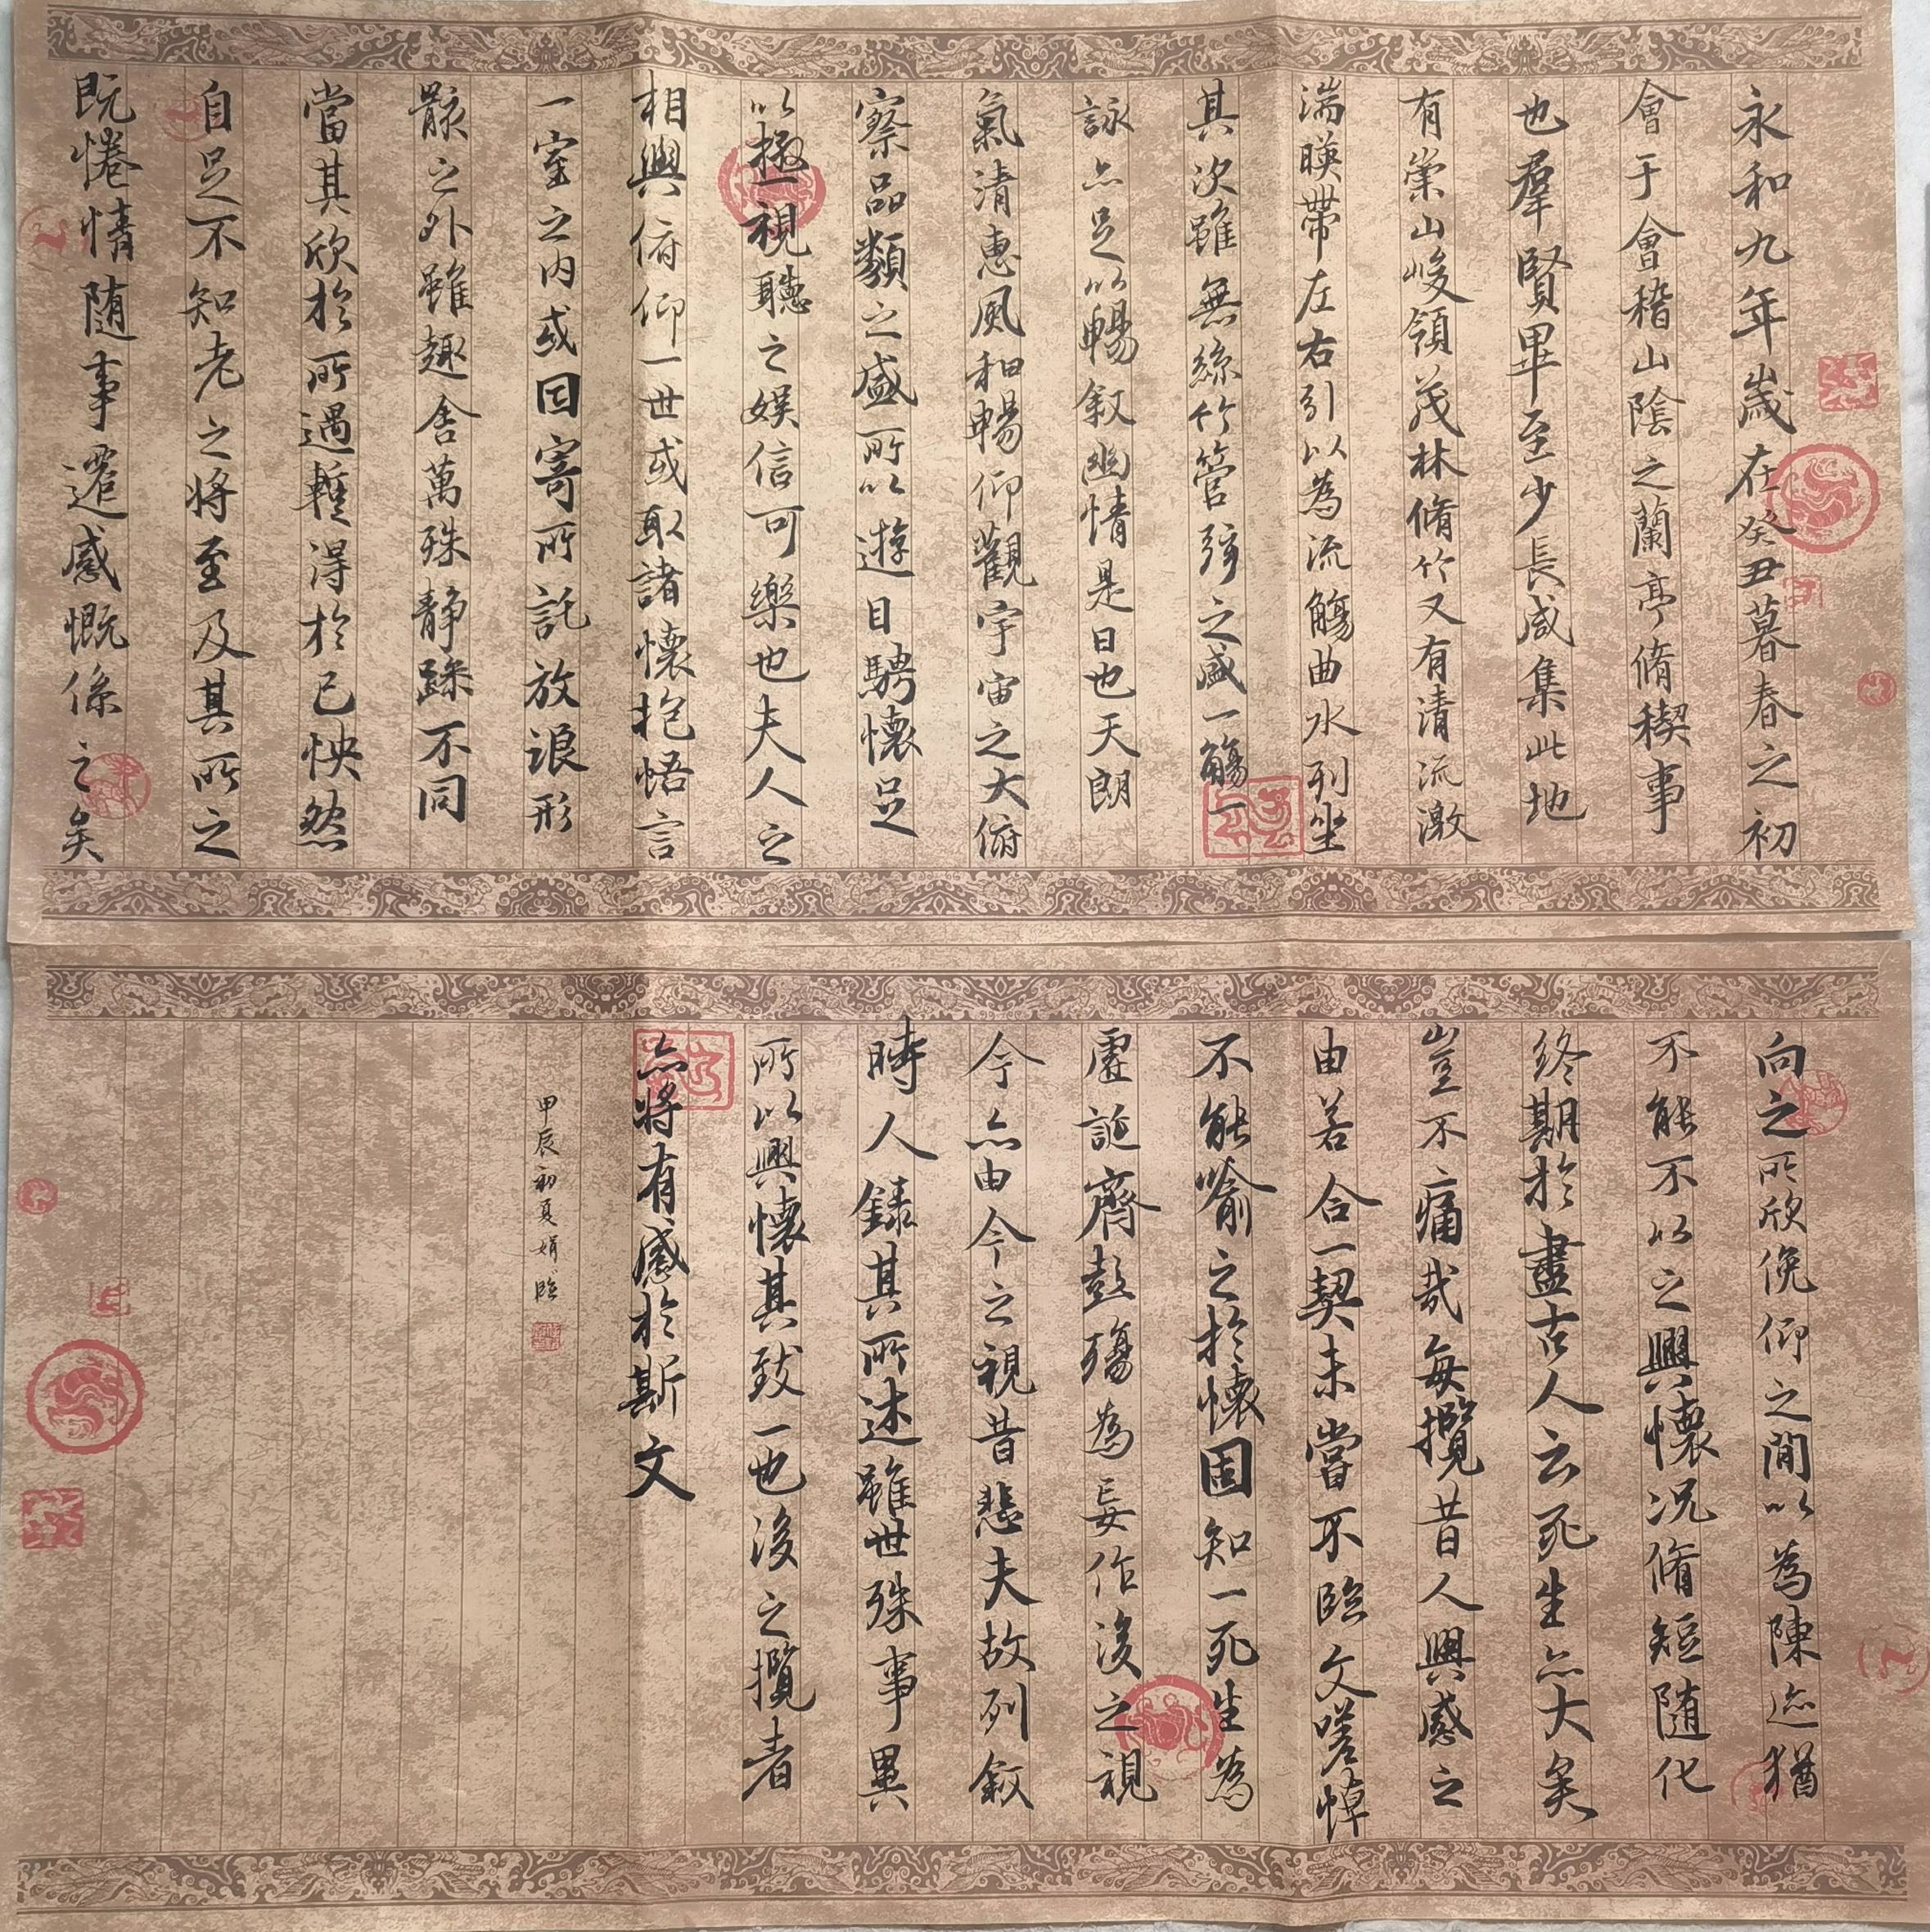 永和九年歲在癸丑暮春之初
會于會稽山陰之蘭亭脩稧事
也羣賢畢至少長咸集此地
有崇山峻領茂林脩竹又有清流激
湍暎帶左右引以為流觴曲水列坐
其次雖無絲竹管弦之盛一觴一
詠亦足以暢敘幽情是日也天朗
氣清惠風和暢仰觀宇宙之大俯
察品類之盛所以遊目騁懷足
以極視聽之娛信可樂也夫人之
相與俯仰一世或取諸懷抱悟言
一室之内或因寄所託放浪形
骸之外雖趣舍萬殊静躁不同
當其欣於所遇暫得於己怏然
自足不知老之將至及其所之
既惓情隨事遷感慨係之矣
向之所欣俛仰之閒以為陳迹猶
不能不以之興懷況脩短隨化
終期於盡古人云死生亦大矣
豈不痛哉每攬昔人興感之
由若合一契未嘗不臨文嗟悼
不能喻之於懷固知一死生為
虛誕齊彭殤為妄作後之視
今亦由今之視昔悲夫故列敘
時人錄其所述雖世殊事異
所以興懷其致一也後之攬者
亦將有感於斯文
甲辰初夏娟臨